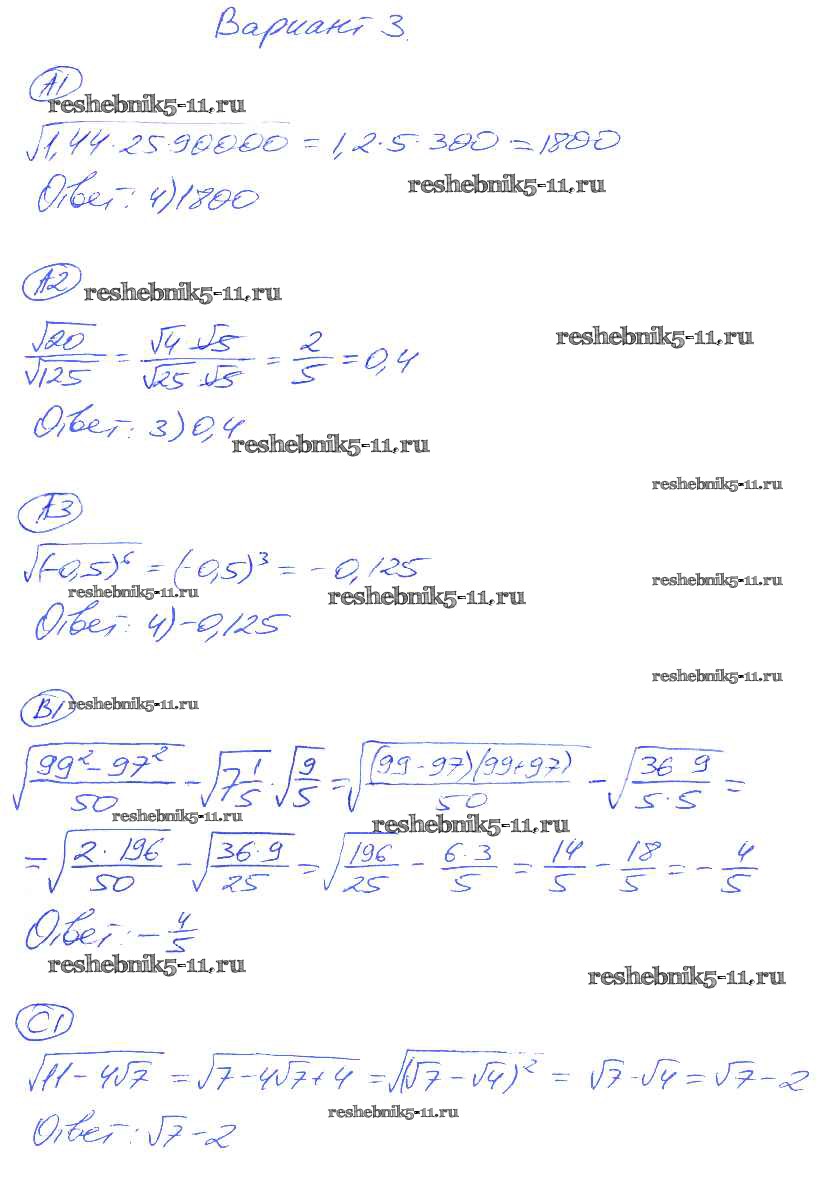 Вариант 3.
А1
reshebnik5-11.ru
√1,44·25·90000 = 1,2·5·300 = 1800
reshebnik5-11.ru
Ответ: 4) 1800
А2
reshebnik5-11.ru
√20/√125 = √4·√5/√25·√5 = 2/5 = 0,4
reshebnik5-11.ru
Ответ: 3) 0,4
reshebnik5-11.ru
reshebnik5-11.ru
А3
√(-0,5)⁶ = (-0,5)³ = -0,125
reshebnik5-11.ru
reshebnik5-11.ru
reshebnik5-11.ru
Ответ: 4) -0,125
reshebnik5-11.ru
В1
reshebnik5-11.ru
√(99²-97²/50) - √(7 1/5) · √(9/5) = √((99-97)(99+97)/50) - √(36 9/5·5) =
reshebnik5-11.ru
reshebnik5-11.ru
= √(2·196/50) - √(36·9/25) = √(196/25) - 6·3/5 = 14/5 - 18/5 = -4/5
Ответ: -4/5
reshebnik5-11.ru
reshebnik5-11.ru
С1
√11-4√7 = √7-4√7+4 = √(√7-√4)² = √7-√4 = √7-2
reshebnik5-11.ru
Ответ: √7-2